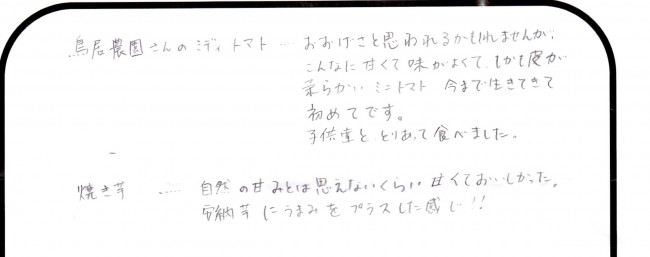 鳥居農園さんのミディトマト … おおげさと思われるかもしれませんが、
こんなに甘くて味がよくて、しかも皮が
柔らかいミニトマト 今まで生きてきて
初めてです。
子供達ととりあって食べました。
焼き芋 …… 自然の甘みとは思えないくらい甘くておいしかった。
安納芋にうまみをプラスした感じ!!